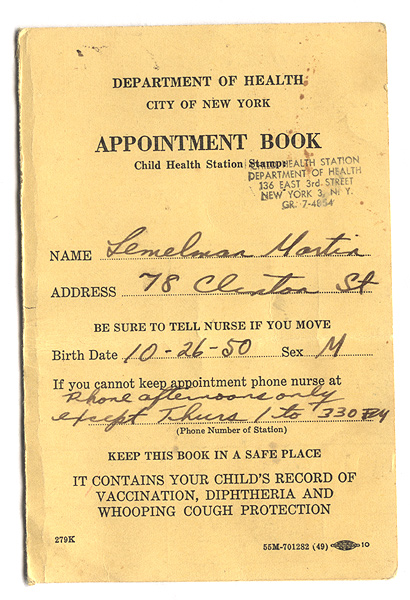 DEPARTMENT OF HEALTH
CITY OF NEW YORK
APPOINTMENT BOOK
Child Health Station Stamp:
HEALTH STATION
DEPARTMENT OF HEALTH
136 EAST 3rd. STREET
NEW YORK 3, N. Y.
GR. 7-4854
NAME Lemelman Martin
ADDRESS 78 Clinton St
BE SURE TO TELL NURSE IF YOU MOVE
Birth Date 10-26-50 Sex M
If you cannot keep appointment phone nurse at
Phone afternoons only
except Thurs 1 to 330 PM
(Phone Number of Station)
KEEP THIS BOOK IN A SAFE PLACE
IT CONTAINS YOUR CHILD'S RECORD OF
VACCINATION, DIPHTHERIA AND
WHOOPING COUGH PROTECTION
279K
55M-701282 (49) 10